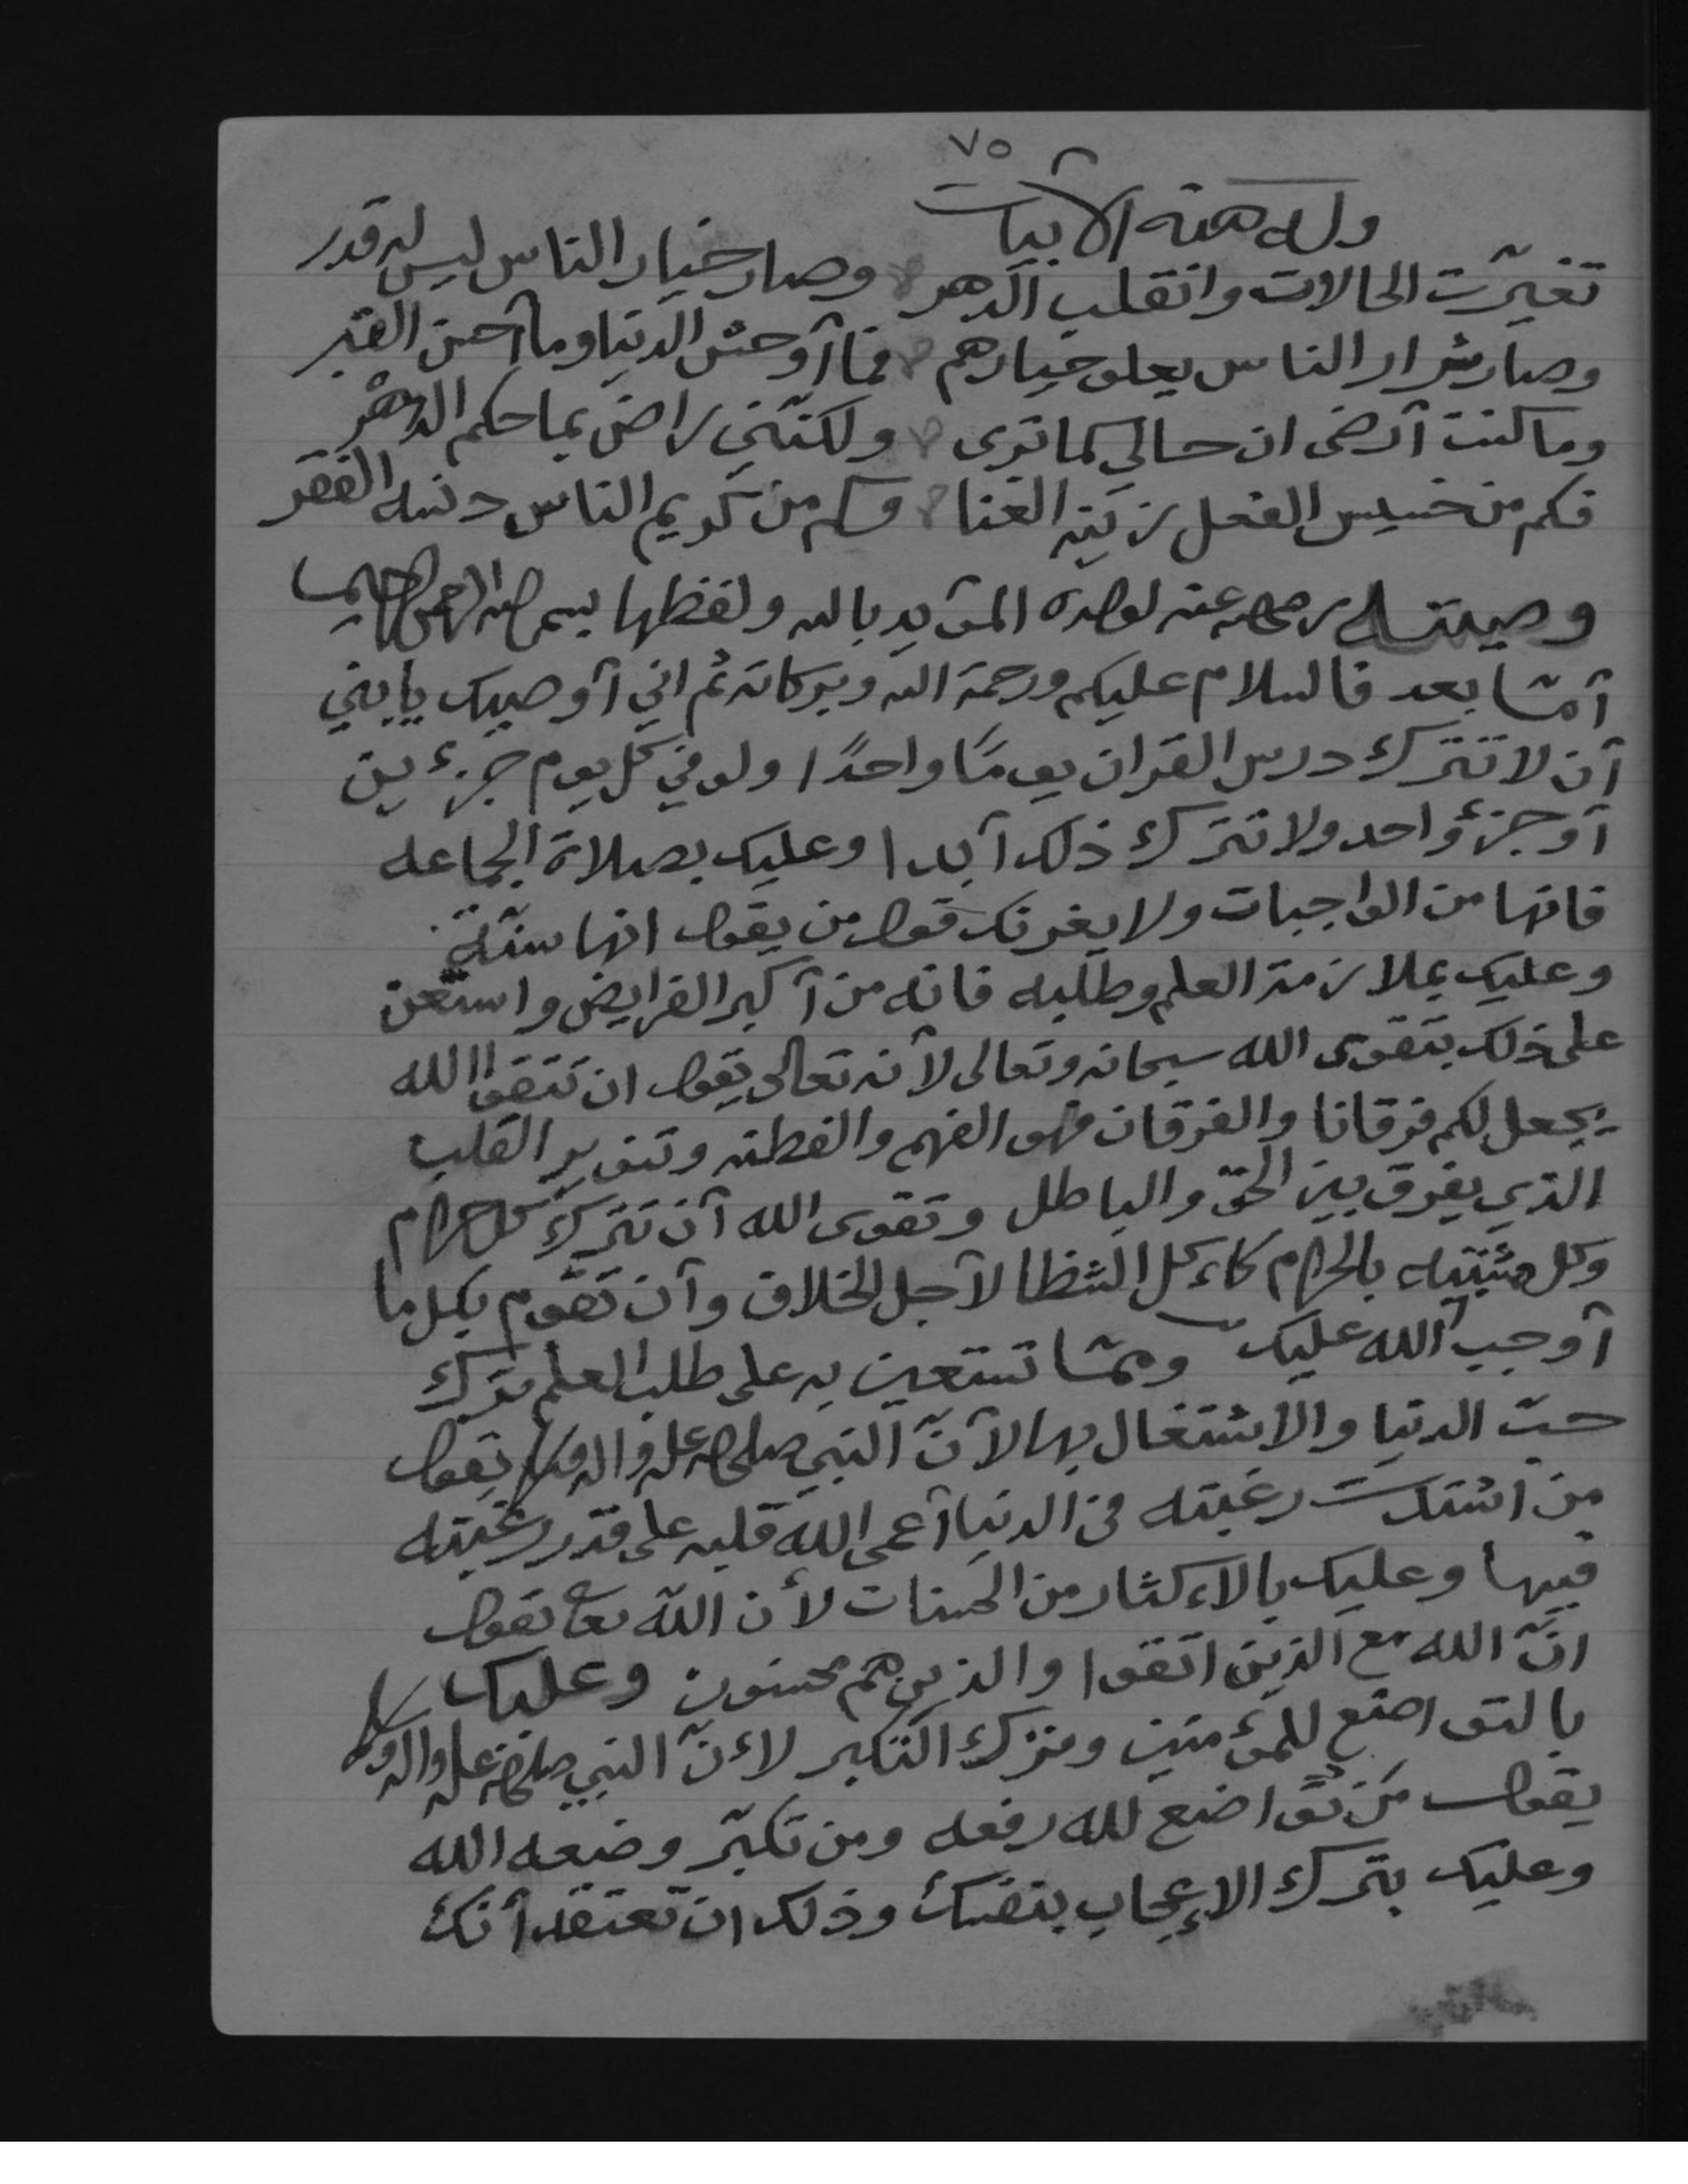 ٧٥
وله هذه الأبيات
تغيّرت الحالات وانقلب الدهر وصار خيار الناس ليس له قدر
وصار شرار الناس يعلو خيارهم فما أوحش الدنيا وما أحسن القبر
وما كنت أرضى ان حالي كما ترى ولكنّني راض بما حكم الدهر
فكم من خسيس الفعل زينه الغنا وكم من كريم الناس دنسه الفقر
وصيته رضي الله عنه لولده المؤيد بالله ولفظها بسم الله الرحمن الرحيم
أمّا بعد فالسلام عليكم ورحمة الله وبركاته ثم اني أوصيك يا بني
أن لا تترك درس القران يومًا واحدًا ولو في كل يوم جزءين
أو جزؤ واحد ولا تترك ذلك أبدا وعليك بصلاة الجماعه
فانها من الواجبات ولا يغرنك قول من يقول انها سنّة
وعليك بملازمة العلم وطلبه فانه من أكبر الفرايض واستعن
على ذلك بتقوى الله سبحانه وتعالى لأنه تعالى يقول ان تتقوا الله
يجعل لكم فرقانا والفرقان فهو الفهم والفطنه وتنوير القلب
الذي يفرق بين الحق والباطل وتقوى الله أن تترك كل حرام
وكل مشتبه بالحرام كاءكل الشظا لأجل الخلاف وأن تقوم بكل ما
أوجب الله عليك وممّا تستعين به على طلب العلم ترك
حبّ الدنيا والاشتغال بها لأنّ النبي صلى الله عليه وآله وسلم يقول
من اشتدت رغبته في الدنيا أعمى الله قلبه على قدر رغبته
فيها وعليك بالاءكثار من الحسنات لأن الله تعالى يقول
انّ الله مع الذين اتقوا والذين هم محسنون وعليك
بالتواضع للمؤمنين وترك التكبر لاءنّ النبي صلى الله عليه وآله وسلم
يقول من تواضع لله رفعه ومن تكبّر وضعه الله
وعليك بترك الإعجاب بنفسك وذلك ان تعتقد أنك